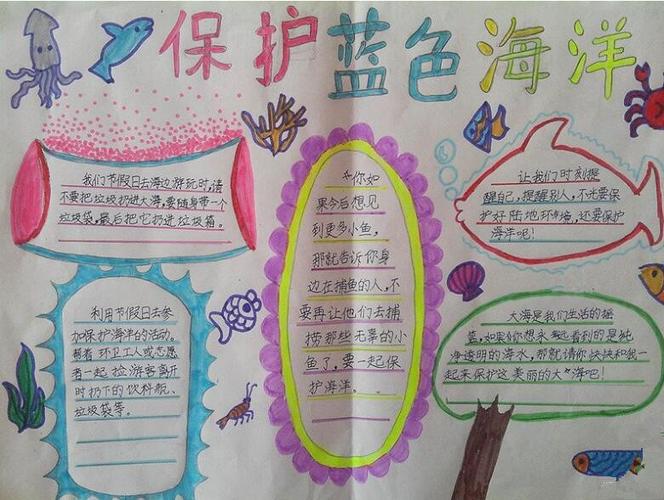 保护蓝色海洋
我们节假日去海边游玩时,请
不要把垃圾扔进大海,要随身带一个
垃圾袋,最后把它扔进垃圾箱。
利用节假日去参
加保护海洋的活动。
帮着环卫工人或志愿
者一起捡游客离开
时扔下的饮料瓶、
垃圾袋等。
你如
果今后想见
到更多小鱼,
那就告诉你身
边在捕鱼的人,不
要再让他们去捕
捞那些无辜的小
鱼了,要一起保
护海洋。
让我们时刻提
醒自己,提醒别人,不光要保
护好陆地环境,还要保护
海洋吧!
大海是我们生活的摇
蓝,如果你想永远看到的是纯
净透明的海水,那就请你快快和我一
起来保护这美丽的大海吧!